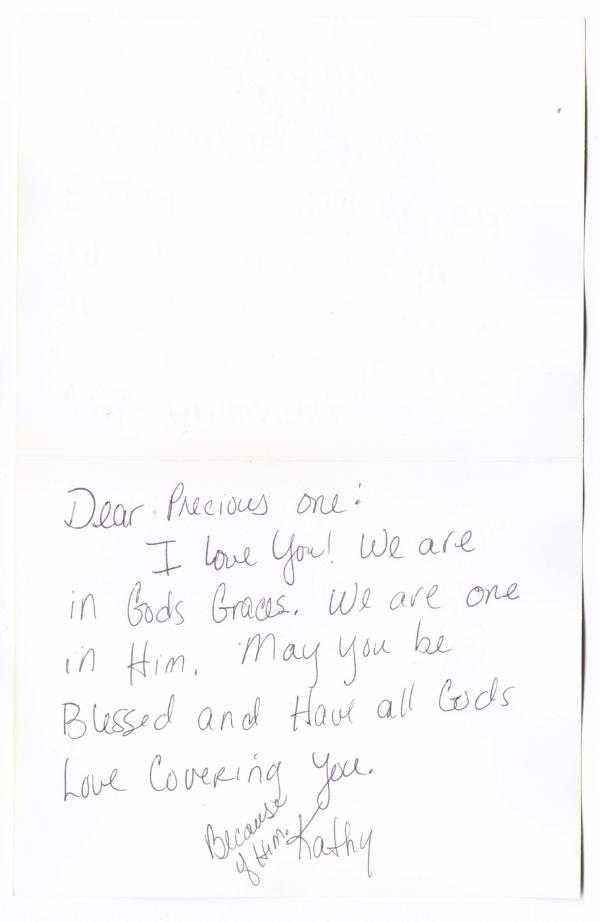 Dear Precious one:
I love You! We are
in Gods Graces. We are one
in Him. May you be
Blessed and Have all Gods
Love Covering You.
Because
of Him.
Kathy